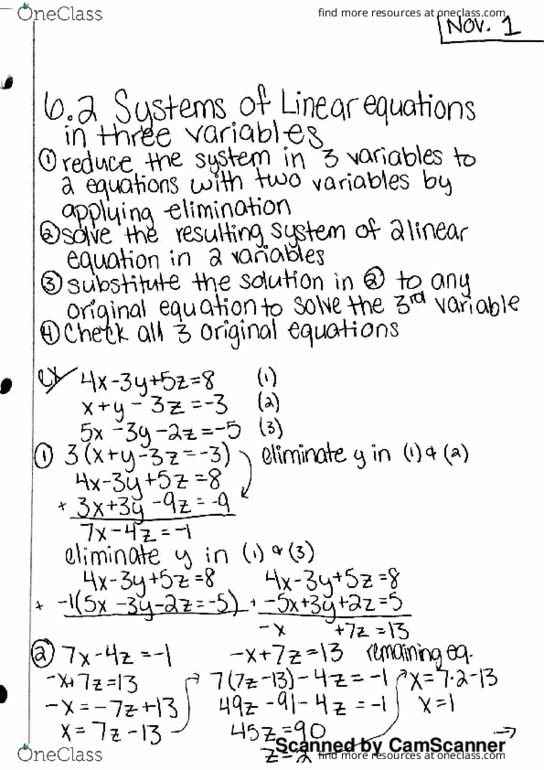 OneClass
find more resources at oneclass.com
Nov. 1
6.2 Systems of Linear equations
in three variables
① reduce the system in 3 variables to
2 equations with two variables by
applying elimination
② solve the resulting system of 2 linear
equation in 2 variables
③ substitute the solution in ② to any
original equation to solve the 3rd variable
④ Check all 3 original equations
ex 4x-3y+5z=8 (1)
x+y-3z=-3 (2)
5x-3y-2z=-5 (3)
① 3(x+y-3z=-3) eliminate y in (1) & (2)
4x-3y+5z=8
+ 3x+3y-9z=-9
7x-4z=-1
eliminate y in (1) & (3)
4x-3y+5z=8 4x-3y+5z=8
+ -1(5x-3y-2z=-5) + -5x+3y+2z=5
-x +7z=13
② 7x-4z=-1 -x+7z=13 remaining eq.
-x+7z=13 7(7z-13)-4z=-1 x=7·2-13
-x=-7z+13 49z-91-4z=-1 x=1
x=7z-13 45z=90 →
z=2
Scanned by CamScanner
OneClass
find more resources at oneclass.com